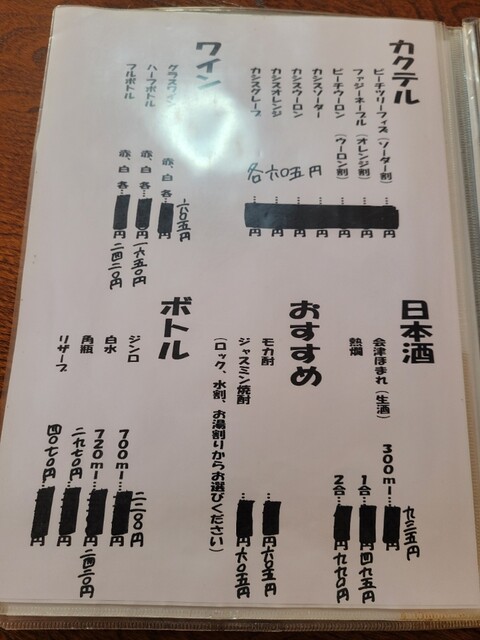 カクテル
ピーチツリーフィズ(ソーダー割)…円
ファジーネーブル(オレンジ割)…円
ピーチウーロン(ウーロン割)…円
カシスソーダー…円
カシスウーロン…円
カシスオレンジ…円
カシスグレープ…円
各六〇五円
ワイン
グラスワイン 赤、白 各…円 六〇五円
ハーフボトル 赤、白 各…円 一六五〇円
フルボトル 赤、白 各…円 二四二〇円
日本酒
会津ほまれ(生酒) 300ml…円 九三五円
熱燗 1合…円 四九五円
2合…円 九九〇円
おすすめ
モカ酎…円 六〇五円
ジャスミン焼酎…円 六〇五円
(ロック、水割、お湯割りからお選びください)
ボトル
ジンロ 700ml…円 二二〇〇円
白水 720ml…円 二四二〇円
角瓶…円 二九七〇円
リザーブ…円 四〇七〇円